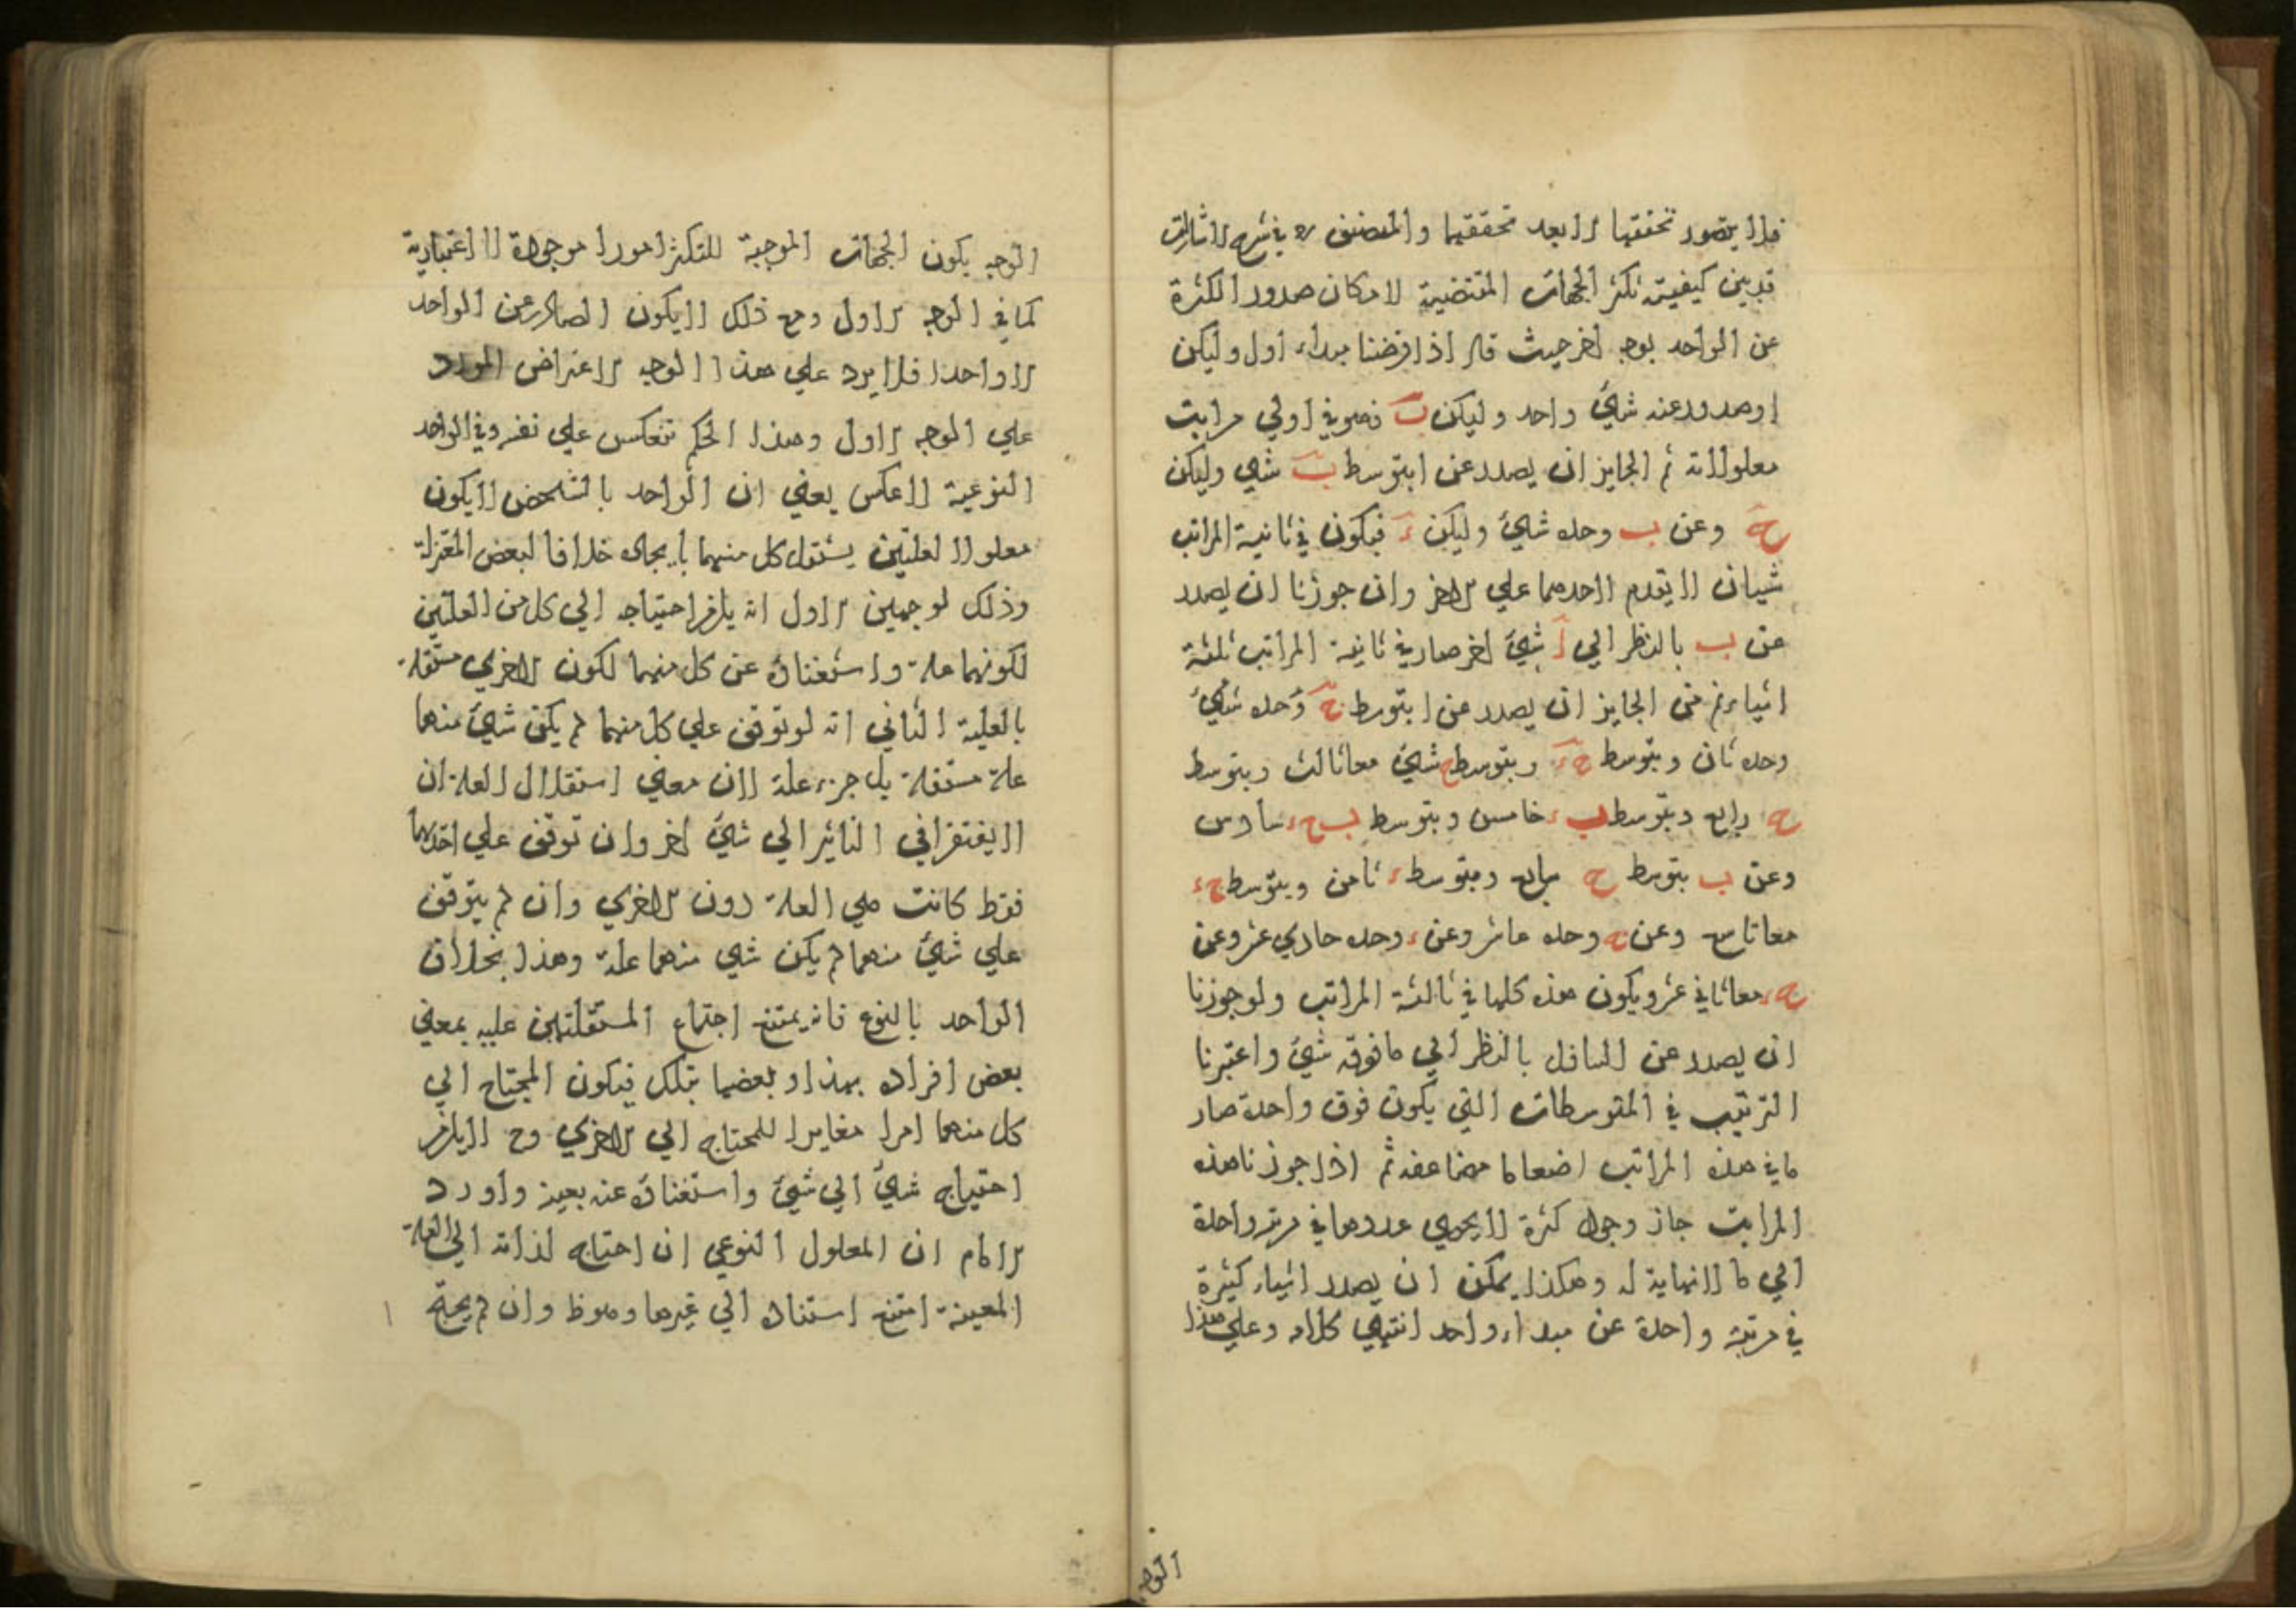 فلا يتصور تحققها الا بعد تحققهما والمصنف ره في شرح الاشارات
قد بين كيفية تكثر الجهات المقتضية لامكان صدور الكثرة
عن الواحد بوجه اخر حيث قال اذا فرضنا مبداء اول وليكن
ا وصدر عنه شيء واحد وليكن ب فهو في اولي مراتب
معلولاته ثم الجايز ان يصدر عن ا بتوسط ب شي وليكن
ج وعن ب وحده شيء وليكن ء فيكون في ثانية المراتب
شيان لا يتقدم لاحدهما علي الاخر وان جوزنا ان يصدر
عن ب بالنظر الي ا شيء اخر صار في ثانية المراتب ثلثة
اشياء ثم من الجايز ان يصدر عن ا بتوسط ج وحده شيء
وحده ثان وبتوسط ج ء وبتوسط ج شيء معا ثالث وبتوسط
ج رابع وبتوسط ب ء خامس وبتوسط ب ج ء سادس
وعن ب بتوسط ج سابع وبتوسط ء ثامن وبتوسط ج ء
معا تاسع وعن ج وحده عاشر وعن ء وحده حادي عشر وعن
ج ء معا ثاني عشر ويكون هذه كلها في ثالثة المراتب ولو جوزنا
ان يصدر عن السافل بالنظر الي ما فوقه شيء واعتبرنا
الترتيب في المتوسطات التي يكون فوق واحدة صار
ما في هذه المراتب اضعافا مضاعفه ثم اذا جوزنا هذه
المراتب جاز وجود كثرة لا يحصي عددها في مرتبة واحدة
الي ما لا نهاية له وهكذا يمكن ان يصدر اشياء كثيرة
في مرتبة واحدة عن مبداء واحد انتهي كلامه وعلي هذا
الوجه
الوجه يكون الجهات الموجبة للتكثر امورا موجودة لا اعتبارية
كما في الوجه الاول ومع ذلك لا يكون الصادر عن الواحد
الا واحدا فلا يرد علي هذا الوجه الاعتراض المورد
علي الوجه الاول وهذا الحكم تنعكس علي نفسه وفي الواحد
النوعية لا عكس يعني ان الواحد بالشخص لا يكون
معلولا لعلتين يستقل كل منهما بايجاده خلافا لبعض المعتزلة
وذلك لوجهين الاول انه يلزم احتياجه الي كل من العلتين
لكونهما علة واستغناؤه عن كل منهما لكون الاخري مستقلة
بالعلية الثاني انه لو توقف علي كل منهما لم يكن شيء منهما
علة مستقلة بل جزء علة لان معني استقلال العلة ان
لا يفتقر في التاثير الي شيء اخر وان توقف علي احدهما
فقط كانت هي العلة دون الاخري وان لم يتوقف
علي شيء منهما لم يكن شي منهما علة وهذا بخلاف
الواحد بالنوع فانه يمتنع اجتماع المستقلتين عليه بمعني
بعض افراده بهذا وبعضها بتلك فيكون المحتاج الي
كل منهما امرا مغايرا للمحتاج الي الاخري وح لا يلزم
احتياج شيء الي شيء واستغناؤه عنه بعينه واورد
الامام ان المعلول النوعي ان احتاج لذاته الي العلة
المعينة امتنع استناده الي غيرها وهو ظ وان لم يحتج